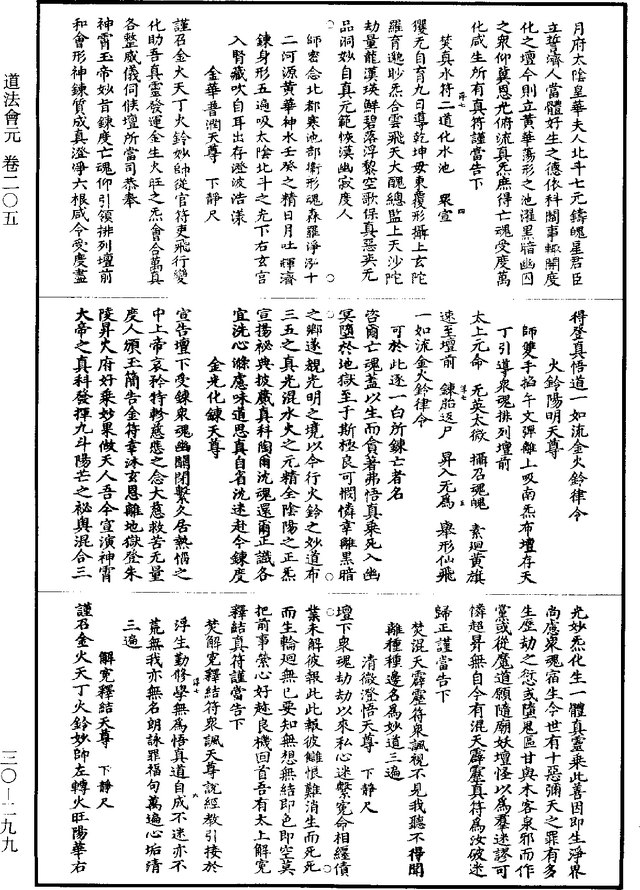 道法會元 卷二〇五
三〇-二九九
月府太陰皇華夫人北斗七元鑄魄星君臣
立誓濟人當體好生之德依科闔事輒開度
化之壇今則立黃華蕩形之池濯黑暗幽囚
之衆仰冀恩光俯流真炁庶得亡魂受度萬
化咸生所有真符謹當告下
焚真水符二道化水池 衆宣
攖无自育九日導乾坤毋東覆形攝上玄陀
羅育邈眇炁合雲飛天大醜總監上天沙陀
劫量龍漢瑛鮮碧落浮黎空歌保真惡奕无
品洞妙自真元範恢漠幽寂度人
師密念北都寒池部衛形魂森羅淨泓十
二河源黃華神水壬癸之精日月吐暉濟
鍊身形五遍吸太陰北斗之炁下右玄宫
入腎藏吹自耳出存澄波浩漾
金華普潤天尊 下靜尺
謹召金火天丁火鈴妙師從官符吏飛行變
化助吾真靈發運金生火旺之炁會合萬真
各整威儀伺候壇所當司恭奉
神霄玉帝妙旨鍊度亡魂仰引領排列壇前
和會形神鍊質成真澄凈六根咸令受度盡
得登真悟道一如流金火鈴律令
火鈴陽明天尊
師雙手掐午文彈離上吸南炁布壇存天
丁引導衆魂排列壇前
太上元命 无英太微 攝召魂魄 素迴黃旗
速至壇前 鍊胎返尸 昇入无爲 舉形仙飛
一如流金火鈴律令
可於此逐一白所鍊亡者名
咨爾亡魂蓋以生而貪著弗悟真乘死入幽
冥墮於地獄至于斯極良可憫憐幸離黑暗
之鄉遂覩光明之境以今行火鈴之妙道布
三五之真光混水火之元精全陰陽之正炁
宣揚祕典披蕆真科陶爾沈魂還爾正識各
宜洗心滌慮味道思真自省沈迷赴今鍊度
金光化鍊天尊
宣告壇下受鍊衆魂幽關閉繫久居熱惱之
中上帝哀矜特軫慈悲之念大慈救苦无量
度人頒玉簡告金符幸沐玄恩離地獄登朱
陵昇火府好乘妙果做天人吾今宣演神霄
大帝之真科發揮九斗陽芒之祕與混合三
光妙炁化生一體真靈乘此善因即生淨界
尚慮衆魂宿生今世有十惡彌天之罪有多
生歷劫之愆或墮鬼區甘與木客泉邪而作
黨或從魔道願隨廟妖壇怪以爲羣迷謬可
憐超昇無自今有混天霹靂真符爲汝破迷
歸正謹當告下
焚混天霹靂符衆諷視不見我聽不得聞
離種種邊名爲妙道三遍
清微澄悟天尊 下靜尺
壇下衆魂劫劫以來私心迷繫寃命相纏債
業未解彼報此此報彼讎恨難消生而死死
而生輪迴無已要知無想無結即色即空莫
把前事縈心好趂良機回首吾有太上解寃
釋結真符謹當告下
焚解寃釋結符衆諷天尊説經教引接於
浮生勤修學無爲悟真道自成不迷亦不
荒無我亦無名朗詠罪福句萬遍心垢清
三遍
解寃釋結天尊 下靜尺
謹召金火天丁火鈴妙師左轉火旺陽華右